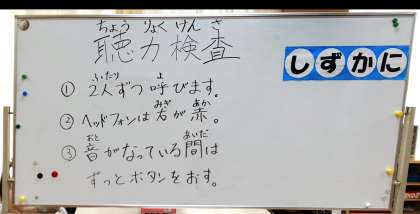 ちょうりょくけんさ
聴力検査
しずかに
ふたり よ
① 2人ずつ呼びます。
みぎ あか
② ヘッドフォンは右が赤。
おと あいだ
③ 音がなっている間は
ずっとボタンをおす。